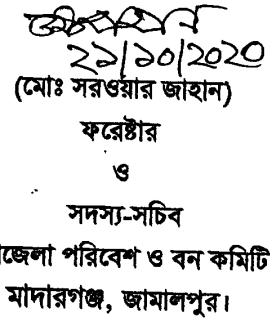 ২১/১০/২০২০
(মোঃ সরওয়ার জাহান)
ফরেষ্টার
ও
সদস্য-সচিব
জেলা পরিবেশ ও বন কমিটি
মাদারগঞ্জ, জামালপুর।